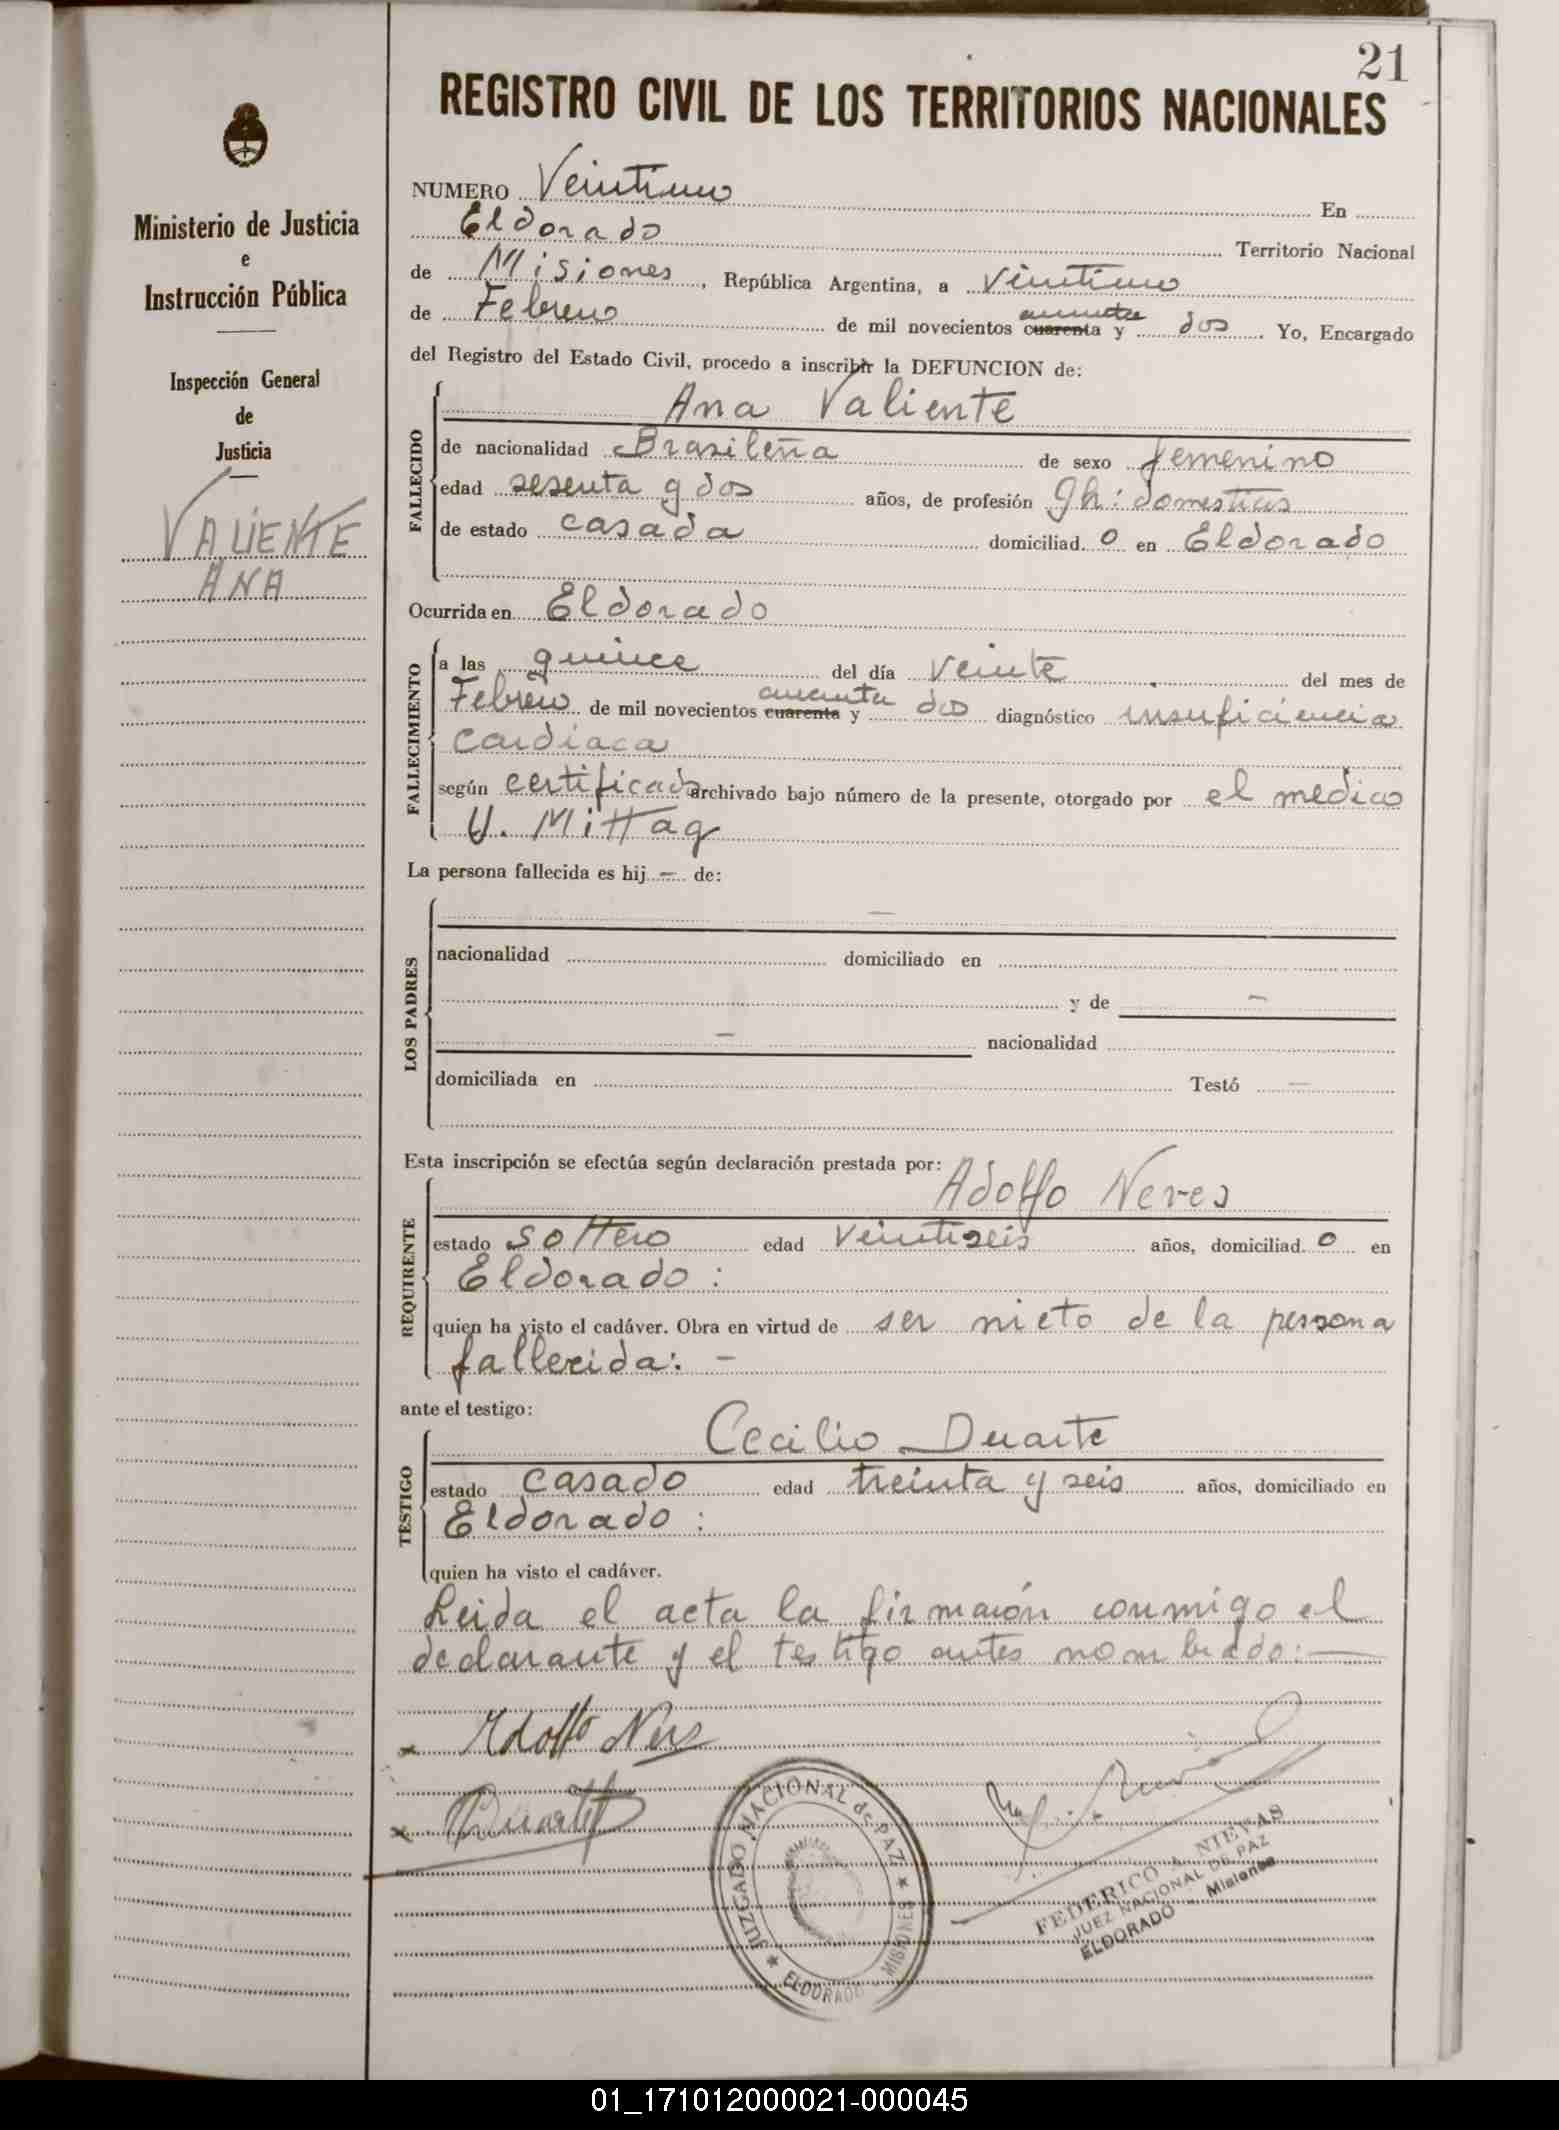 21
REGISTRO CIVIL DE LOS TERRITORIOS NACIONALES
Ministerio de Justicia
e
Instrucción Pública
Inspección General
de
Justicia
VALIENTE
ANA
NUMERO Veintiuno En
Eldorado Territorio Nacional
de Misiones, República Argentina, a veintiuno
de Febrero de mil novecientos cuarenta y dos. Yo, Encargado
del Registro del Estado Civil, procedo a inscribir la DEFUNCION de:
FALLECIDO
Ana Valiente
de nacionalidad Brasileña de sexo femenino
edad sesenta y dos años, de profesión domesticos
de estado casada domiciliad o en Eldorado
Ocurrida en Eldorado
FALLECIMIENTO
a las quince del día veinte del mes de
Febrero de mil novecientos cuarenta y dos diagnóstico insuficiencia
cardiaca
según certificado archivado bajo número de la presente, otorgado por el medico
U. Mittag
La persona fallecida es hij — de:
LOS PADRES
—
nacionalidad domiciliado en
y de —
— nacionalidad
domiciliada en Testó —
Esta inscripción se efectúa según declaración prestada por:
REQUIRENTE
Adolfo Neves
estado soltero edad veintiseis años, domiciliad o en
Eldorado:
quien ha visto el cadáver. Obra en virtud de ser nieto de la persona
fallecida: —
ante el testigo:
TESTIGO
Cecilio Duarte
estado casado edad treinta y seis años, domiciliado en
Eldorado:
quien ha visto el cadáver.
Leida el acta la firmaron conmigo el
declarante y el testigo antes nombrado: —
x Adolfo Neves
x Duarte
JUZGADO NACIONAL de PAZ
ELDORADO MISIONES
FEDERICO A. NIEVAS
JUEZ NACIONAL DE PAZ
ELDORADO - Misiones
01_171012000021-000045